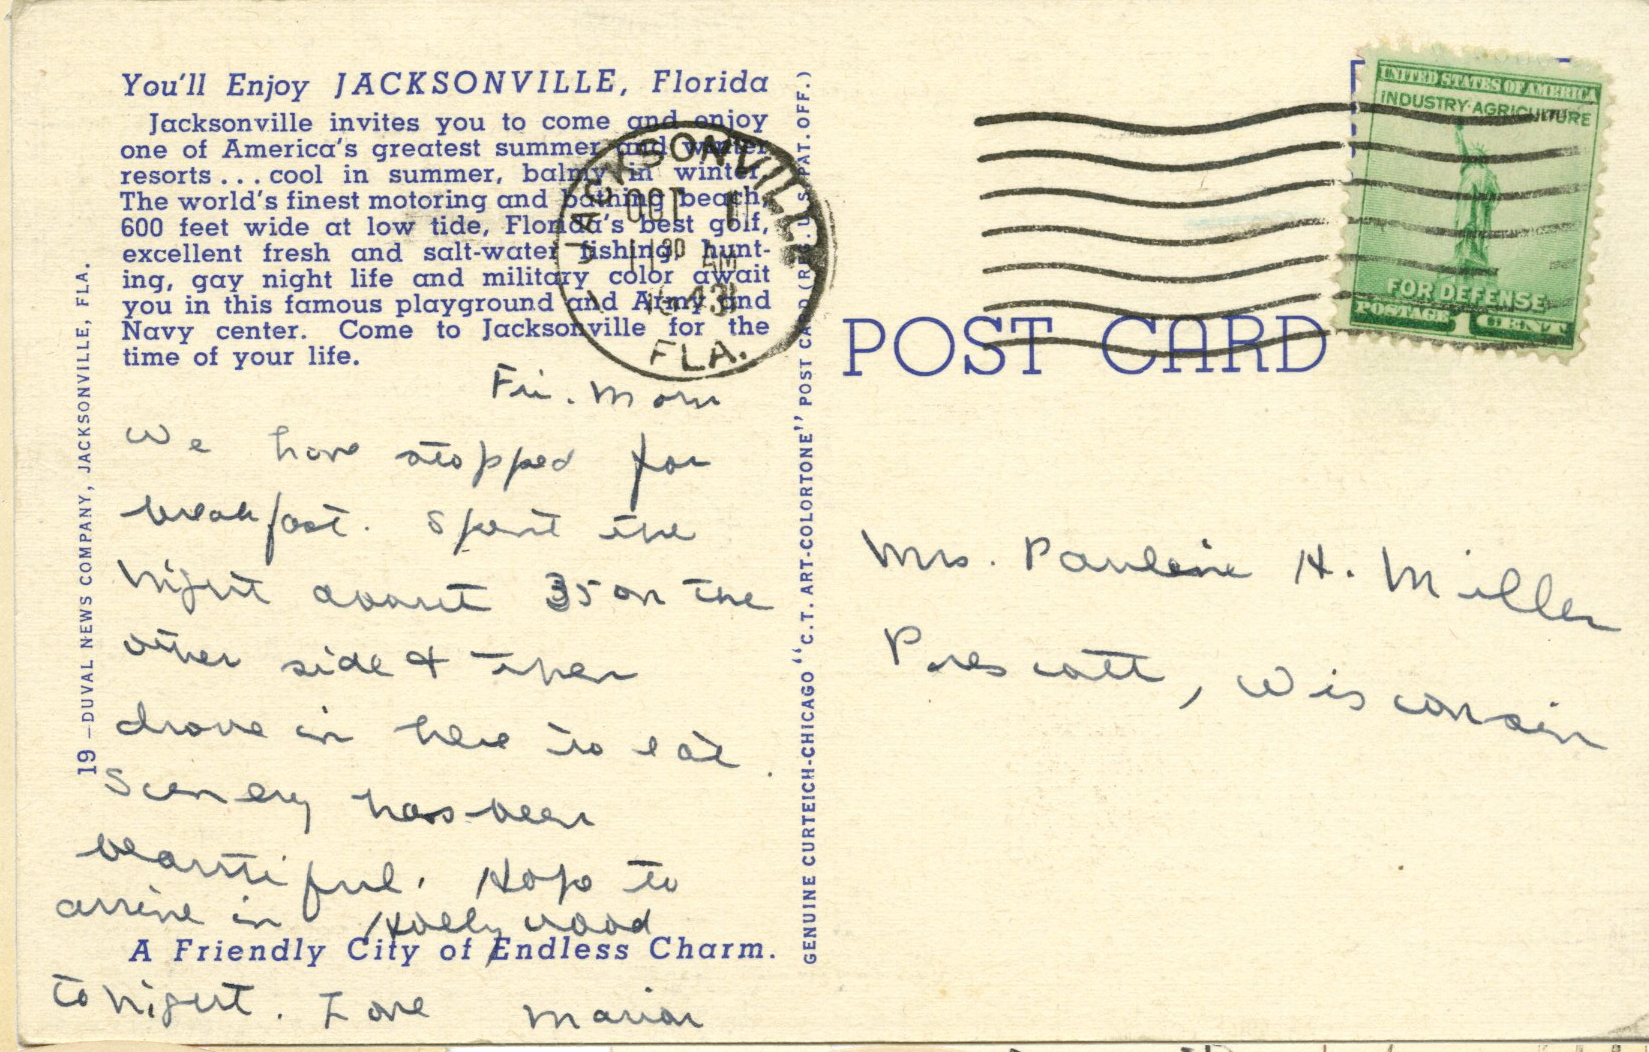 You'll Enjoy JACKSONVILLE, Florida
Jacksonville invites you to come and enjoy
one of America's greatest summer and winter
resorts . . . cool in summer, balmy in winter.
The world's finest motoring and bathing beach,
600 feet wide at low tide, Florida's best golf,
excellent fresh and salt-water fishing, hunt-
ing, gay night life and military color await
you in this famous playground and Army and
Navy center. Come to Jacksonville for the
time of your life.
JACKSONVILLE
OCT 1
11 30 AM
1943
FLA.
Fri. Morn
We have stopped for
breakfast. Spent the
night about 35 on the
other side & then
drove in here to eat.
Scenery has been
beautiful. Hope to
arrive in Hollywood
A Friendly City of Endless Charm.
tonight. Love Marian
19—DUVAL NEWS COMPANY, JACKSONVILLE, FLA.
GENUINE CURTEICH-CHICAGO "C.T. ART-COLORTONE" POST CARD (REG. U.S. PAT. OFF.)
POST CARD
UNITED STATES OF AMERICA
INDUSTRY·AGRICULTURE
FOR DEFENSE
POSTAGE 1 CENT
Mrs. Pauline H. Miller
Prescott, Wisconsin